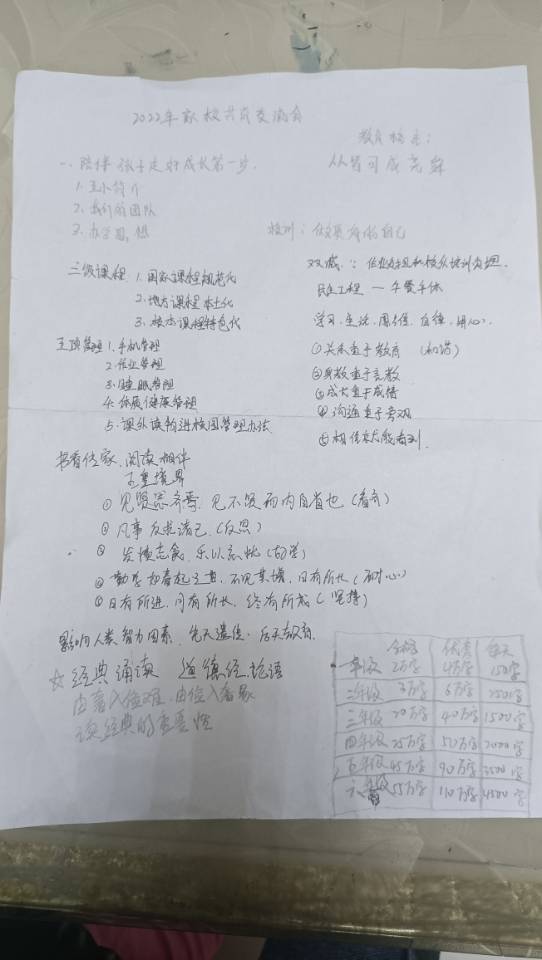 2022年家校共育交流会
教育格言:
人皆可成尧舜
一、陪伴孩子走好成长第一步.
1.
2、我们的团队
3. 办学思想
校训: 做最好的自己
三级课程 1. 国家课程规范化
2. 地方课程本土化
3、校本课程特色化
双减: 作业
民生工程 —
学习.生活.
五项管理 1. 手机管理
2. 作业管理
3. 睡眠管理
4. 体质健康管理
5. 课外读物进校园管理办法
①关系重于教育
②身教重于言教
③成长重于成绩
④沟通重于
⑤相信
书香传家、阅读相伴
五重境界
① 见贤思齐焉, 见不贤而内自省也 (看齐)
② 凡事反求诸己. (反思)
③ 发愤忘食, 乐以忘忧 (好学)
④ 勤学如春起之苗, 不见其增, 日有所长 (耐心)
⑤ 日有所进, 月有所长, 终有所成 (坚持)
影响人类智力因素, 先天遗传, 后天教育.
☆ 经典诵读 道德经.论语
由富入俭难, 由俭入奢易
读经典的重要性
合格 优秀 每天
年级 2万字 4万字 150字
二年级 3万字 6万字 250字
三年级 20万字 40万字 1500字
四年级 25万字 50万字 2000字
五年级 45万字 90万字 3500字
六年级 55万字 110万字 4500字